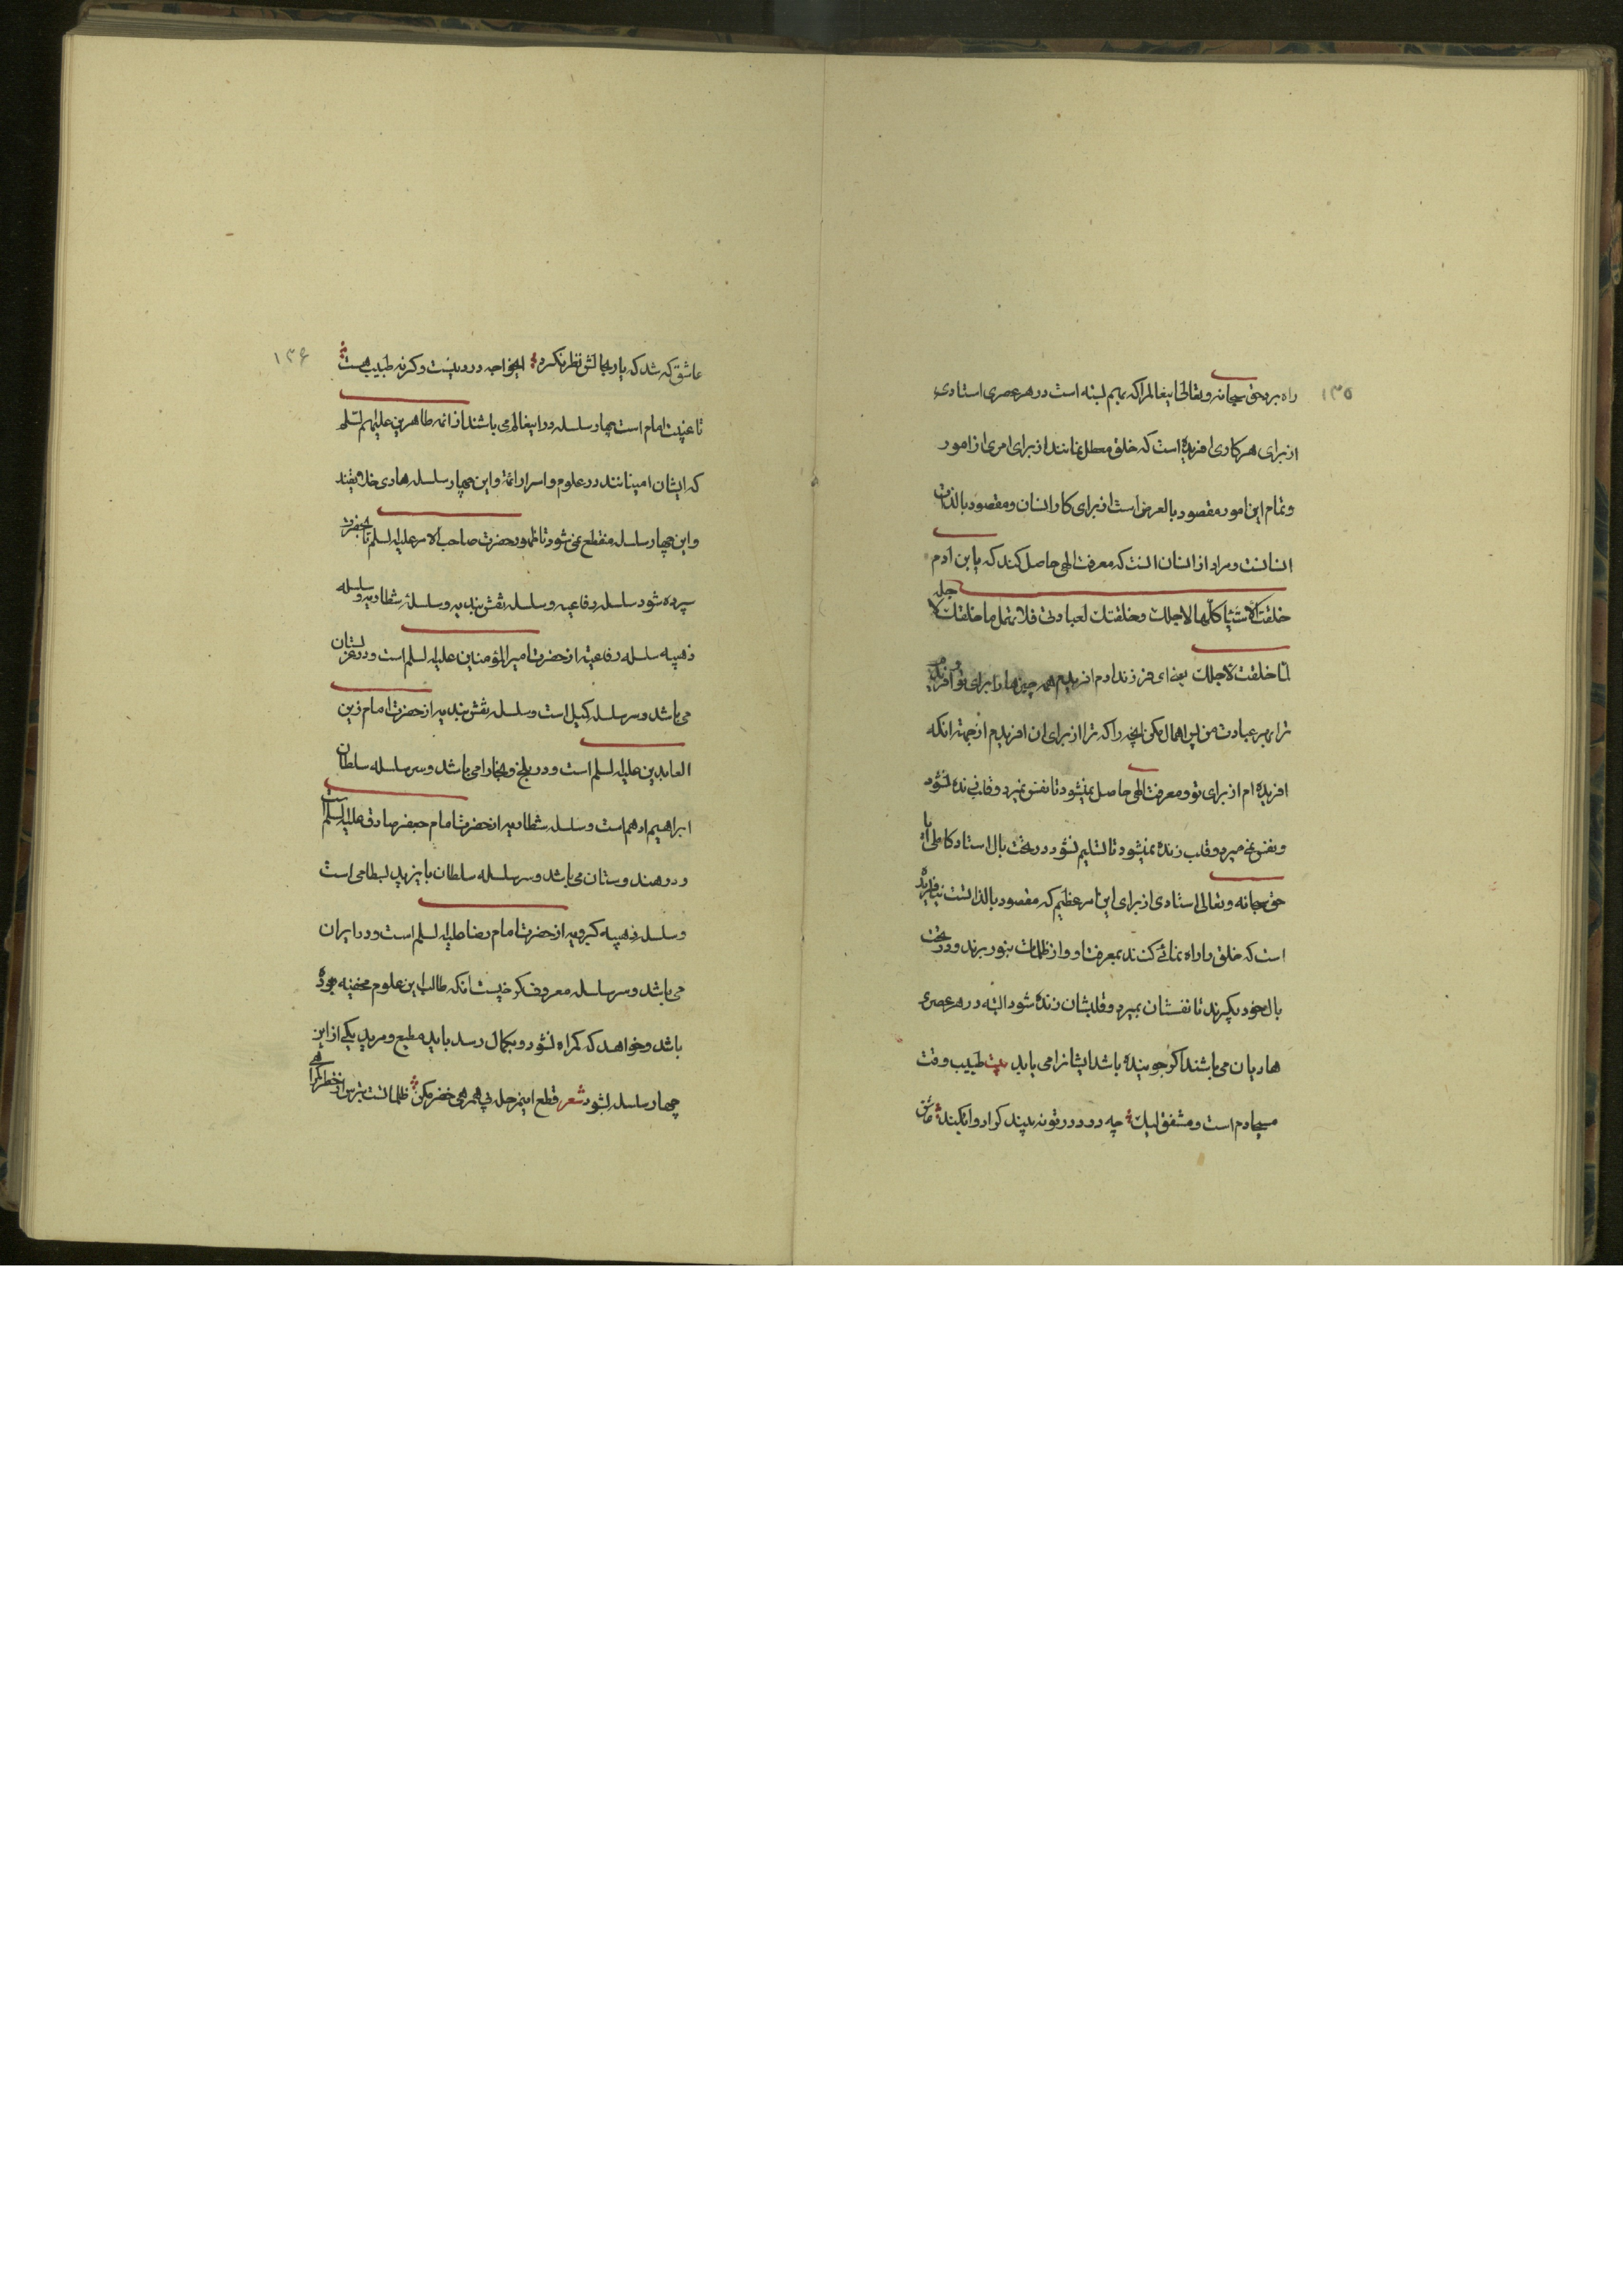 ۱۳۵
راه برد حق سبحانه و تعالی اینعالم را که بهم بسته است در هر عصری استادی
از برای هر کاری افریده است که خلق معطل نمانند از برای امری از امور
و تمام این امور مقصود بالعرض است از برای کار انسان و مقصود بالذات
انسانست و مراد از انسان انست که معرفت الهی حاصل کند که یابن آدم
خلقت الاشیاء کلّها لاجلك و خلقتك لعبادتی فلا تهمل ما خلقتك لاجله
لما خلقت لاجلك یعنی ای فرزند ادم افریدم همه چیزها را برای تو و افریدم
ترا بهر عبادت من پس اهمال مکن انچه را که ترا از برای ان افریدم از جهة انکه
افریده ام از برای تو و معرفت الهی حاصل نمیشود تا نفس نمیرد و قلب زنده نشود
و نفس نمی میرد و قلب زنده نمیشود تا تسلیم نشود در تحت بال استاد کاملی ایا
حق سبحانه و تعالی استادی از برای این امر عظیم که مقصود بالذاتست نیافریده
است که خلق را راه نمائی کنند بمعرفت او و از ظلمات بنور برند و در تحت
بال خود بگیرند تا نفسشان بمیرد و قلبشان زنده شود البته در هر عصری
هادیان می باشند اگر جوینده باشد ایشانرا می یابد بیت طبیب وقت
مسیحا دم است و مشفق لیك چه درد در تو نه بیند کرا دوا بکند عاشق
۱۳۶
عاشق که شد که یار بحالش نظر نکرد ایخواجه درد نیست و کرنه طبیب هست
تا غیبت امام است چهار سلسله در اینعالم می باشند از ائمه طاهرین علیهم السلم
که ایشان امینانند در علوم و اسرار ائمة و این چهار سلسله هادی خلایقند
و این چهار سلسله منقطع نمی شود تا ظهور حضرت صاحب الامر علیه السلم تا بحضرت
سپرده شود سلسله رفاعیه و سلسله نقش بندیه و سلسلهٔ شطاریه و سلسله
ذهبیه سلسله رفاعیه از حضرت امیر المؤمنین علیه السلم است و در عربستان
می باشد و سر سلسله کمیل است و سلسله نقش بندیه از حضرت امام زین
العابدین علیه السلم است و در بلخ و بخارا می باشد و سر سلسله سلطان
ابراهیم ادهم است و سلسله شطاریه از حضرت امام جعفر صادق علیه السلم است
و در هندوستان می باشد و سر سلسله سلطان بایزید بسطامی است
و سلسله ذهبیه کبرویه از حضرت امام رضا علیه السلم است و در ایران
می باشد و سر سلسله معروف کرخیست انکه طالب این علوم مخفیه بوده
باشد و خواهد که کمراه نشود و بکمال رسد باید مطیع و مرید یکی از این
چهار سلسله بشود شعر قطع این مرحله بی همرهی خضر مکن ظلماتست بترس از خطر کمراهی